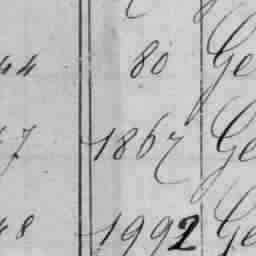 44 80 Ge
47 1867 Ge
48 1992 Ge